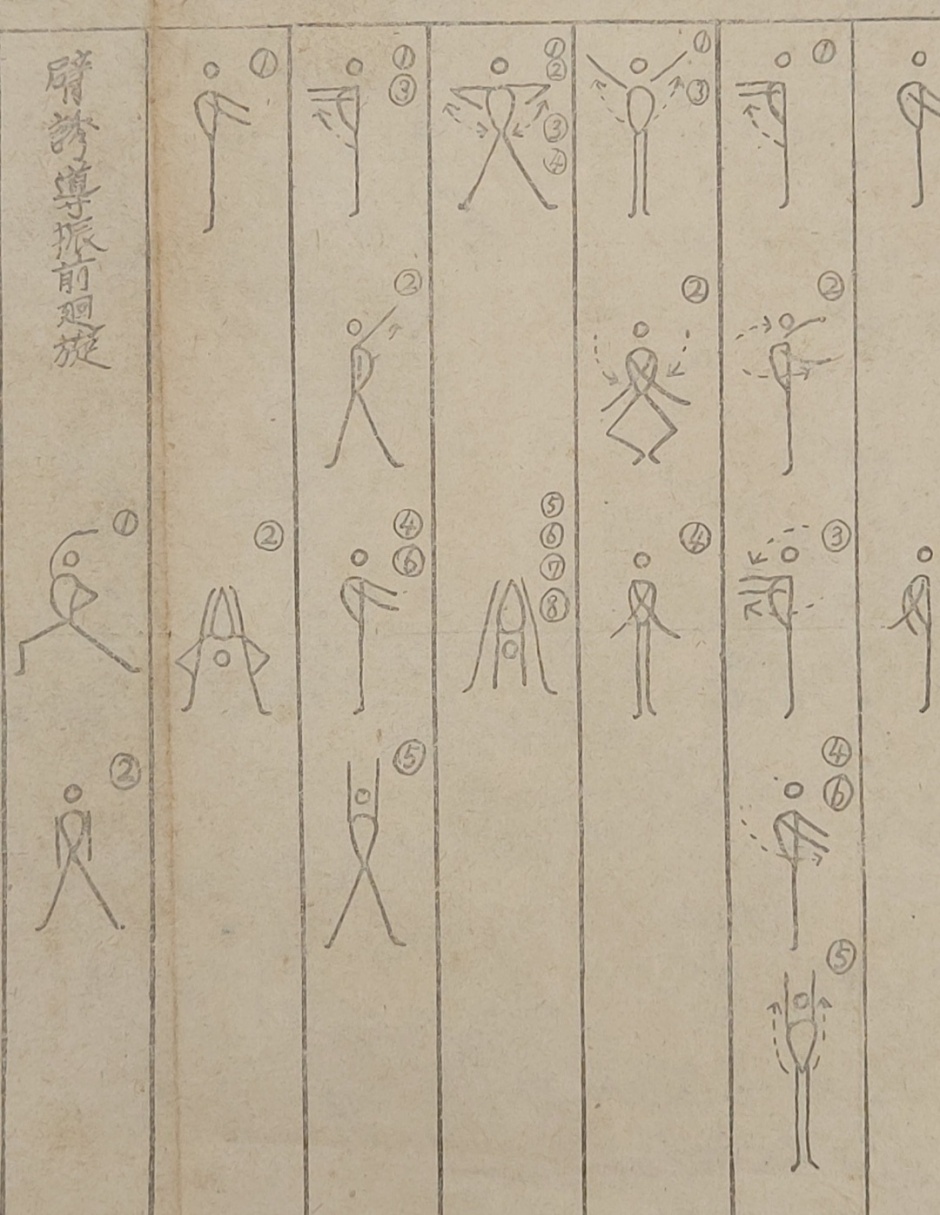 ①
②
③
④
⑥
⑤
①
③
②
④
①
②
③
④
⑤
⑥
⑦
⑧
①
③
②
④
⑥
⑤
①
②
臂誘導振前廻旋
①
②